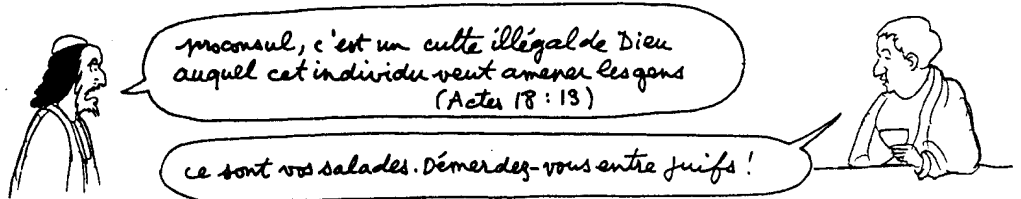 proconsul, c'est un culte illégal de Dieu
auquel cet individu veut amener les gens
(Actes 18:13)
ce sont vos salades. Démerdez-vous entre juifs !